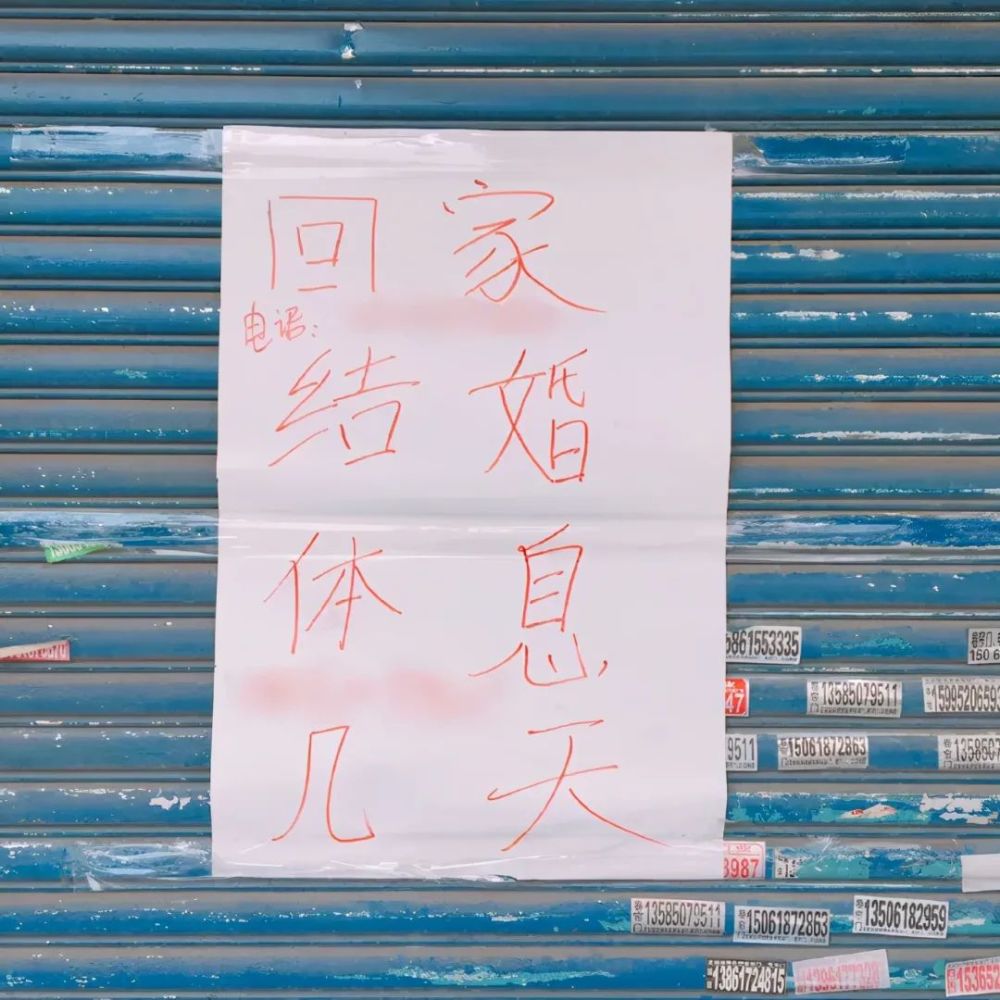 回家
电话:
结婚
体息
几天
5861553335
47
13585079511
9511
15061872863
1358507
3987
13585079511
15061872863
13506182959
13861724815
153652